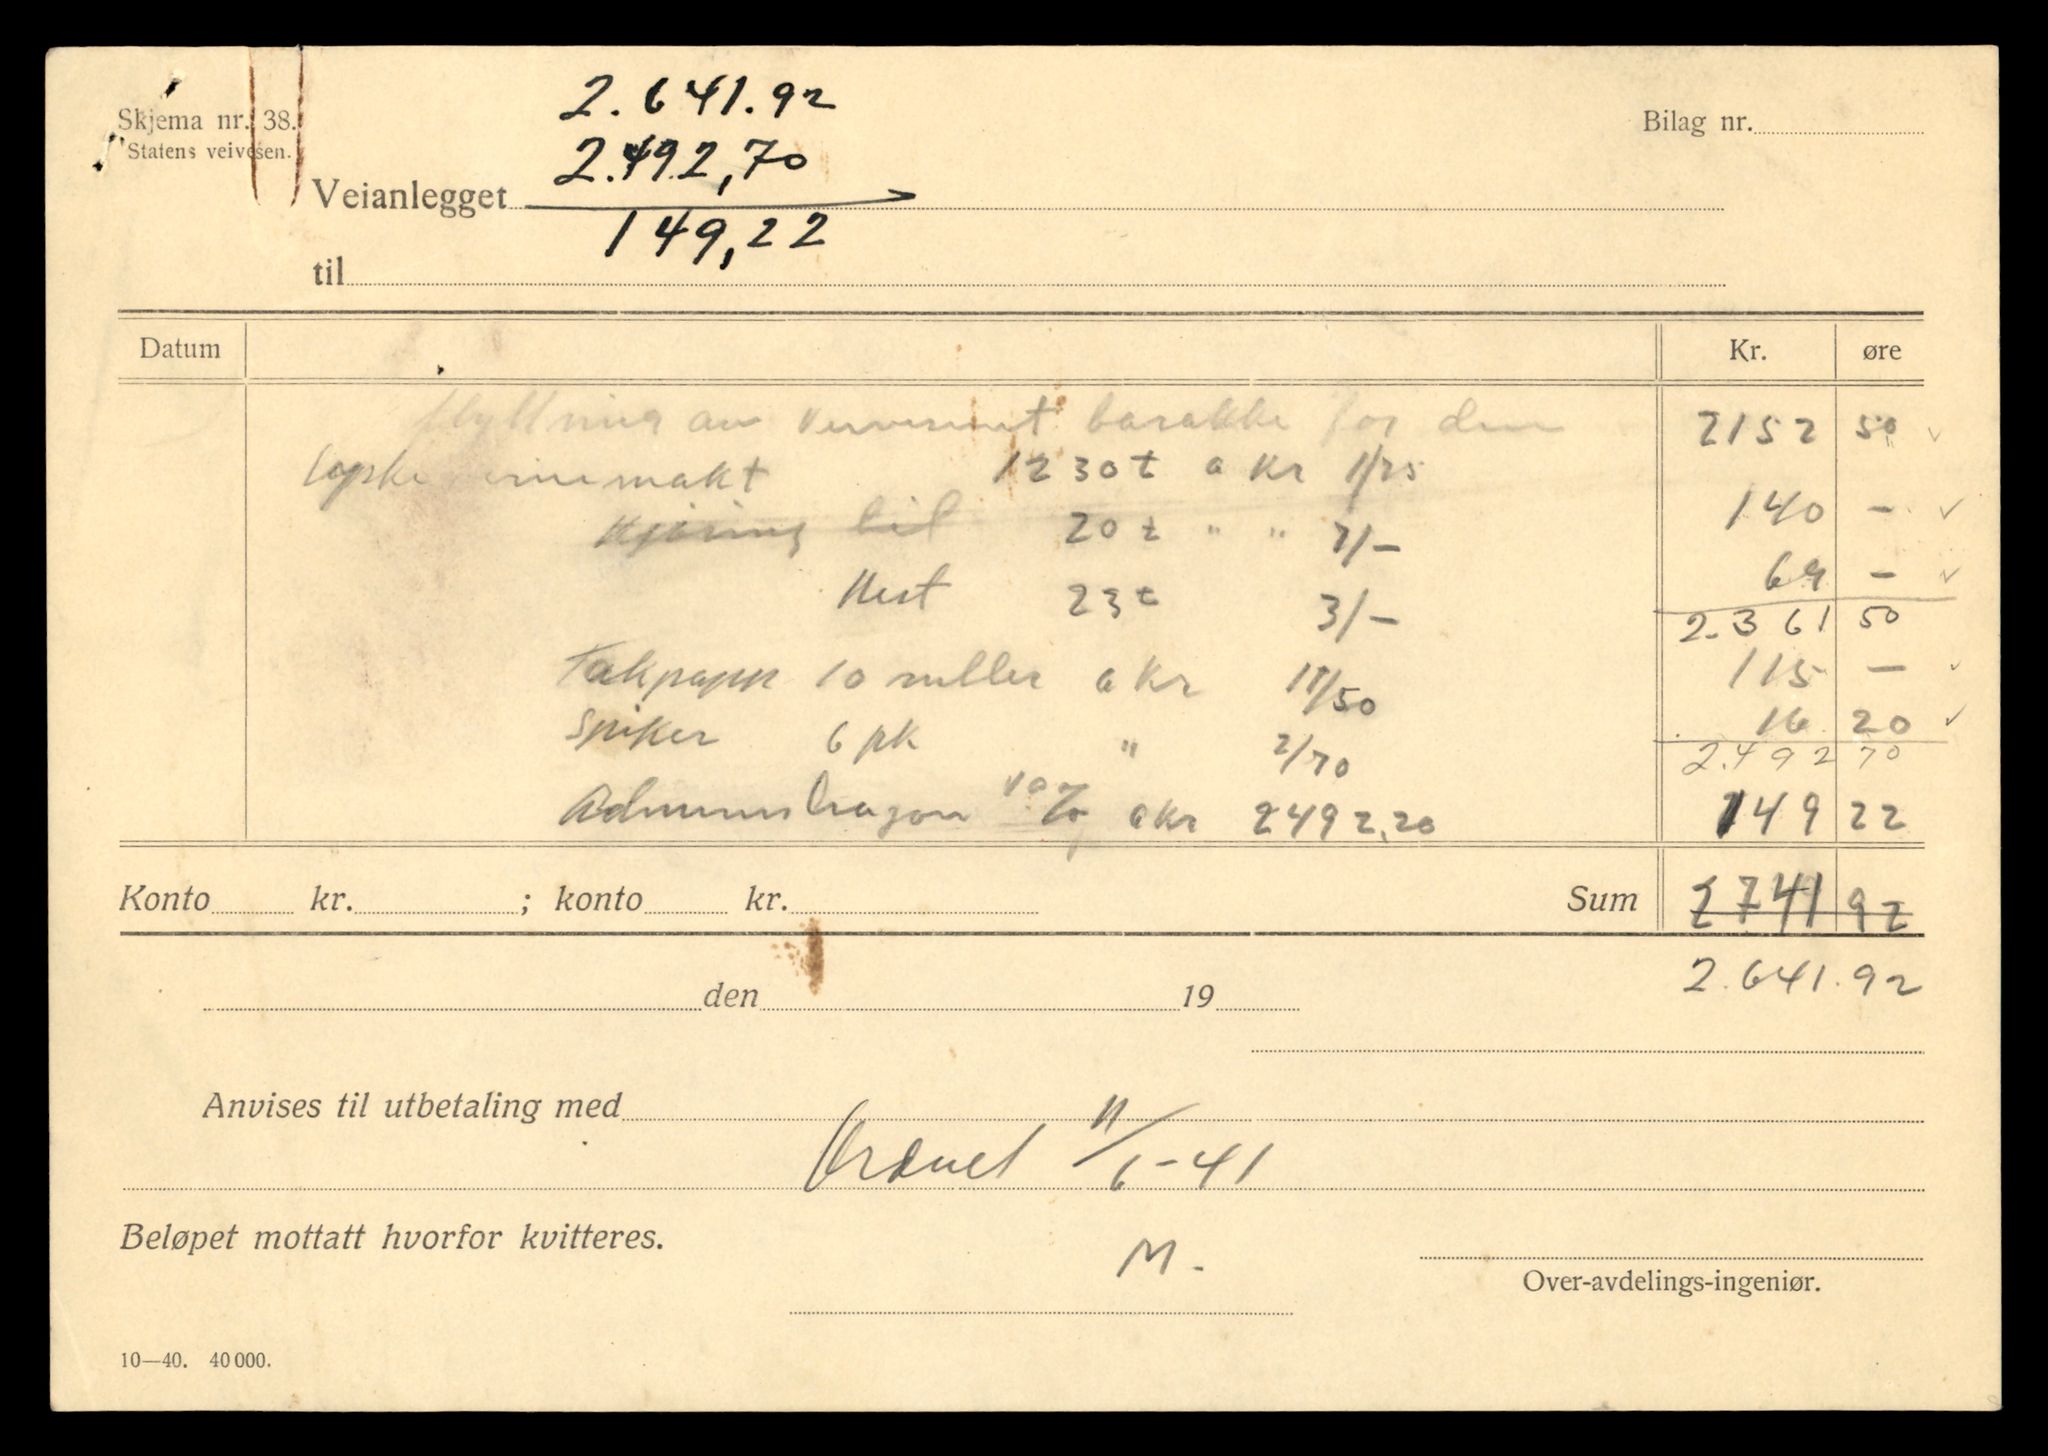 Skjema nr. 38.
Statens veivesen.
Bilag nr.
2.641.92
2.492,70
Veianlegget
149,22
til
Datum Kr. øre
Flyttning av barakke for den 2152 50
makt 1230 t a Kr 1/75
Kjøring bil 20 t " " 7/- 140 -
Hest 23 t 3/- 69 -
2.361 50
Takpapp 10 ruller a Kr 11/50 115 -
Spiker 6 pk " 2/70 16 20
2.492 70
Administrasjon % a Kr 2492,20 149 22
Konto kr. ; konto kr. Sum 2741 92
2.641.92
den 19
Anvises til utbetaling med
11/6-41
Beløpet mottatt hvorfor kvitteres.
M.
Over-avdelings-ingeniør.
10—40. 40 000.